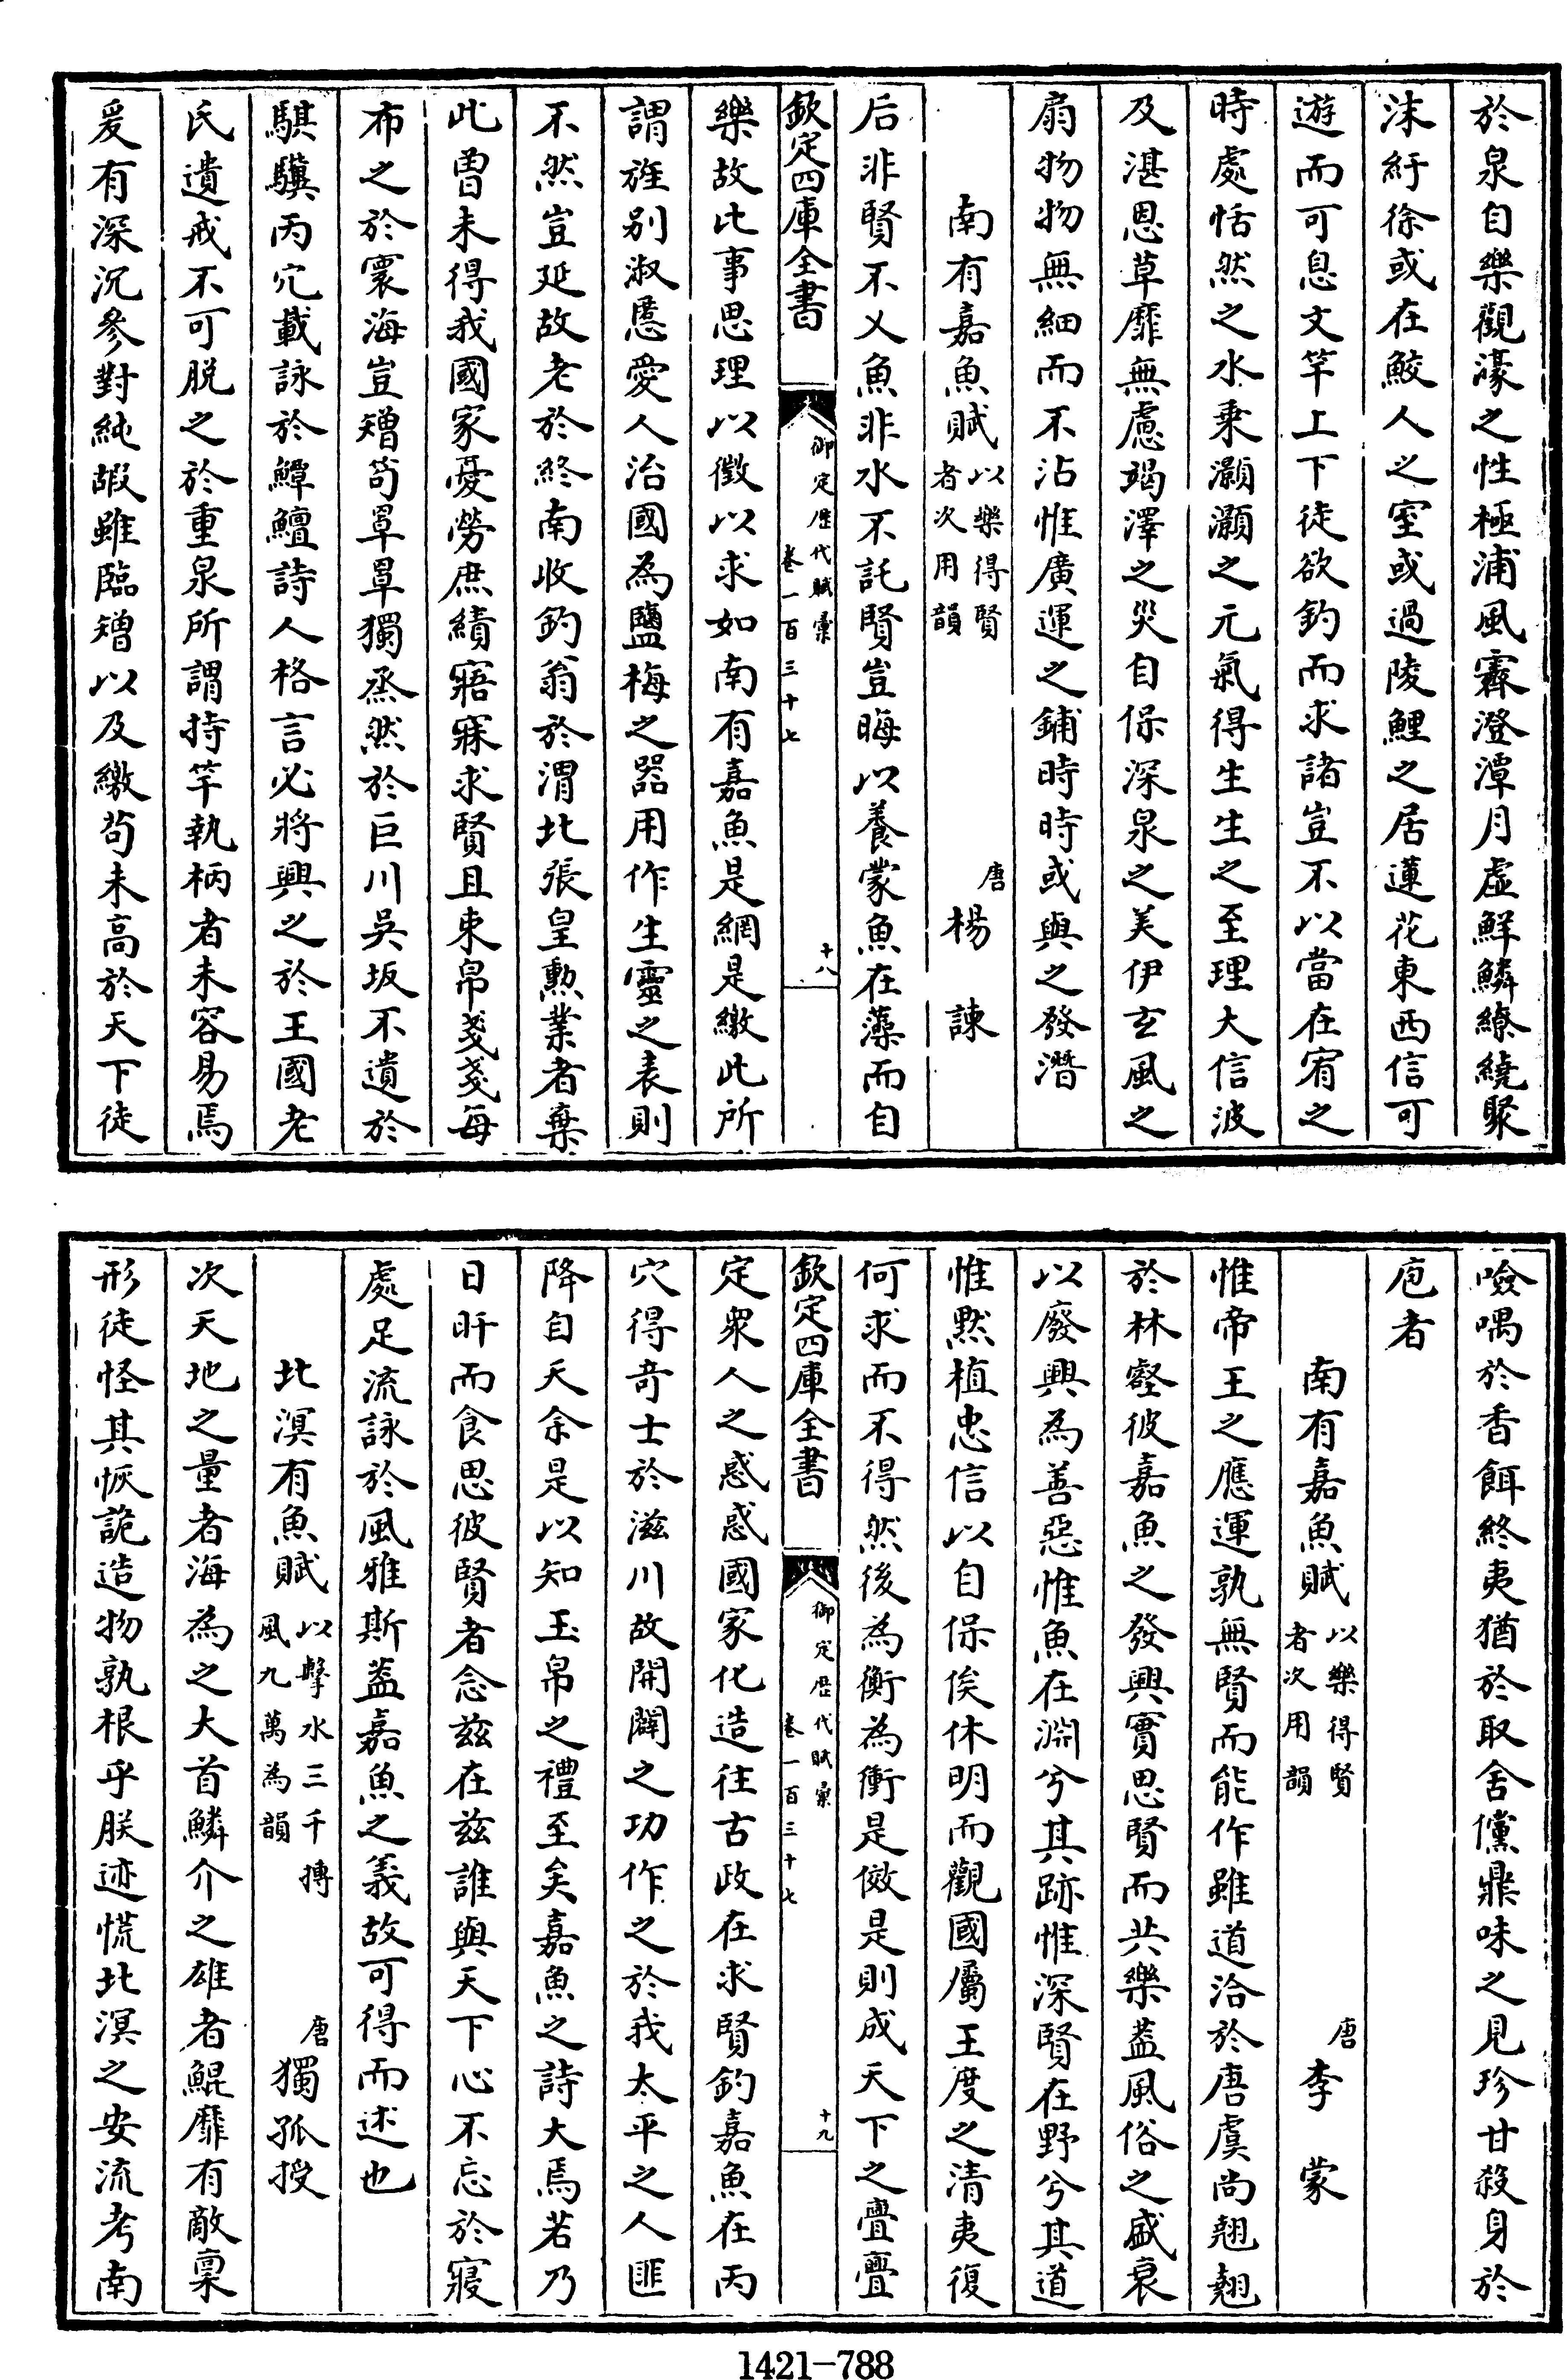 於泉自樂觀濠之性極浦風霽澄潭月虛鮮鱗繚繞聚
沫紆徐或在鮫人之室或過陵鯉之居蓮花東西信可
遊而可息文竿上下徒欲釣而求諸豈不以當在宥之
時處恬然之水乗灝灝之元氣得生生之至理大信波
及湛恩草靡無慮竭澤之災自保深泉之美伊玄風之
扇物物無細而不沾惟廣運之鋪時時或興之發潛
南有嘉魚賦以樂得賢者次用韻 唐楊諫
后非賢不乂魚非水不託賢豈晦以養蒙魚在藻而自
欽定四庫全書 御定歷代賦彙 卷一百三十七 十八
樂故比事思理以徵以求如南有嘉魚是網是繳此所
謂旌别淑慝愛人治國為鹽梅之器用作生靈之表則
不然豈延故老於終南收釣翁於渭北張皇勲業者棄
此曽未得我國家憂勞庶績寤寐求賢且束帛戔戔每
布之於寰海豈矰笱罩罩獨烝然於巨川吳坂不遺於
騏驥丙穴載詠於鱏鱣詩人格言必將興之於王國老
氏遺戒不可脱之於重泉所謂持竿執柄者未容易焉
爰有深沉參對純嘏雖臨矰以及繳茍未高於天下徒
噞喁於香餌終夷猶於取舍儻鼎味之見珍甘殺身於
庖者
南有嘉魚賦以樂得賢者次用韻 唐李蒙
惟帝王之應運孰無賢而能作雖道洽於唐虞尚翹翹
於林壑彼嘉魚之發興實思賢而共樂葢風俗之盛衰
以廢興為善惡惟魚在淵兮其跡惟深賢在野兮其道
惟黙植忠信以自保俟休明而觀國屬王度之清夷復
何求而不得然後為衡為衝是傚是則成天下之亹亹
欽定四庫全書 御定歷代賦彙 卷一百三十七 十九
定衆人之惑惑國家化造往古政在求賢釣嘉魚在丙
穴得竒士於滋川故開闢之功作之於我太平之人匪
降自天余是以知玉帛之禮至矣嘉魚之詩大焉若乃
日旰而食思彼賢者念兹在兹誰與天下心不忘於寢
處足流詠於風雅斯葢嘉魚之義故可得而述也
北溟有魚賦以擊水三千摶風九萬為韻 唐獨孤授
次天地之量者海為之大首鱗介之雄者鯤靡有敵稟
形徒怪其恢詭造物孰根乎朕迹慌北溟之安流考南
1421-788